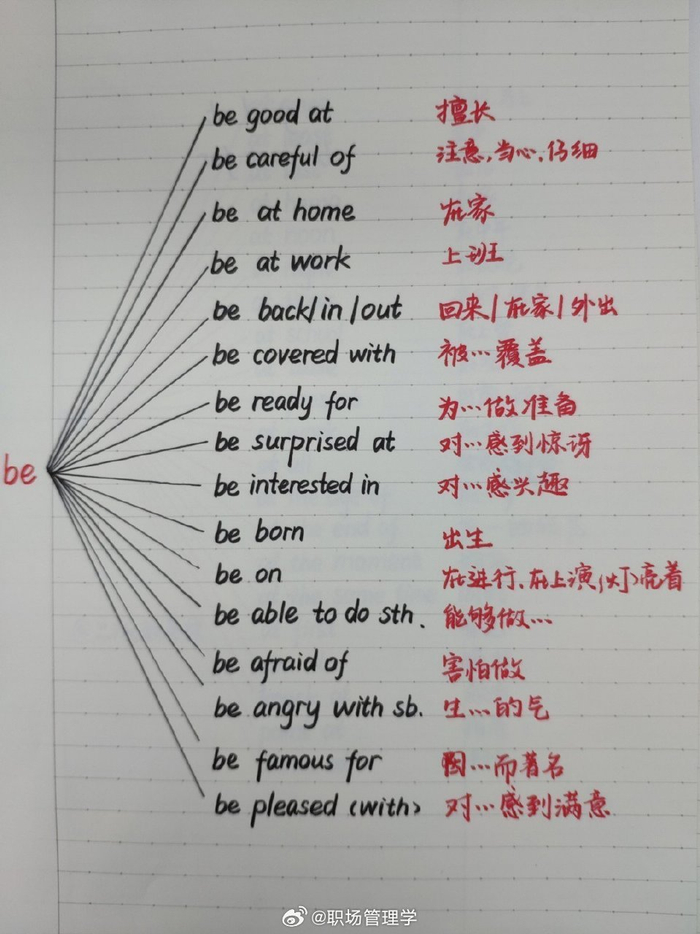 be good at 擅长
be careful of 注意,当心,仔细
be at home 在家
be at work 上班
be back/in/out 回来/在家/外出
be covered with 被…覆盖
be ready for 为…做准备
be surprised at 对…感到惊讶
be interested in 对…感兴趣
be
be born 出生
be on 在进行、在上演,(灯)亮着
be able to do sth. 能够做…
be afraid of 害怕做
be angry with sb. 生…的气
be famous for 因…而著名
be pleased (with) 对…感到满意
@职场管理学